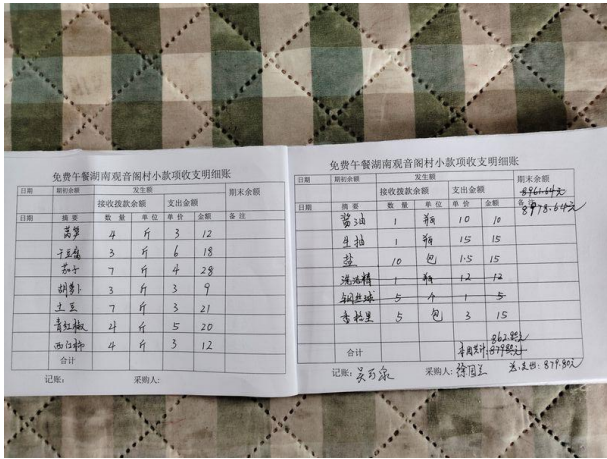 免费午餐湖南观音阁村小款项收支明细账
日期 期初余额 发生额 期末余额
接收拨款余额 支出金额
日期 摘要 数量 单位 单价 金额 备注
莴笋 4 斤 3 12
干豆腐 3 斤 6 18
茄子 7 斤 4 28
胡萝卜 3 斤 3 9
土豆 7 斤 3 21
青红椒 4 斤 5 20
西红柿 4 斤 3 12
合计
记账: 采购人:
免费午餐湖南观音阁村小款项收支明细账
日期 期初余额 发生额 期末余额
接收拨款余额 支出金额 8961.64元
日期 摘要 数量 单位 单价 金额 备注 8978.64元
酱油 1 瓶 10 10
生抽 1 瓶 15 15
盐 10 包 1.5 15
洗洁精 1 瓶 12 12
钢丝球 5 个 1 5
香松里 5 包 3 15
862.80元
合计 本周共计:879.80元
记账: 采购人: 总支出: 879.80元